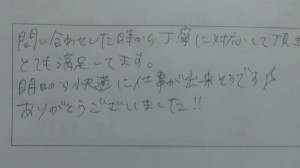 問い合わせした時から丁寧に対応して頂き
とても満足してます。
明日から快適に仕事が出来そうです
ありがとうございました!!